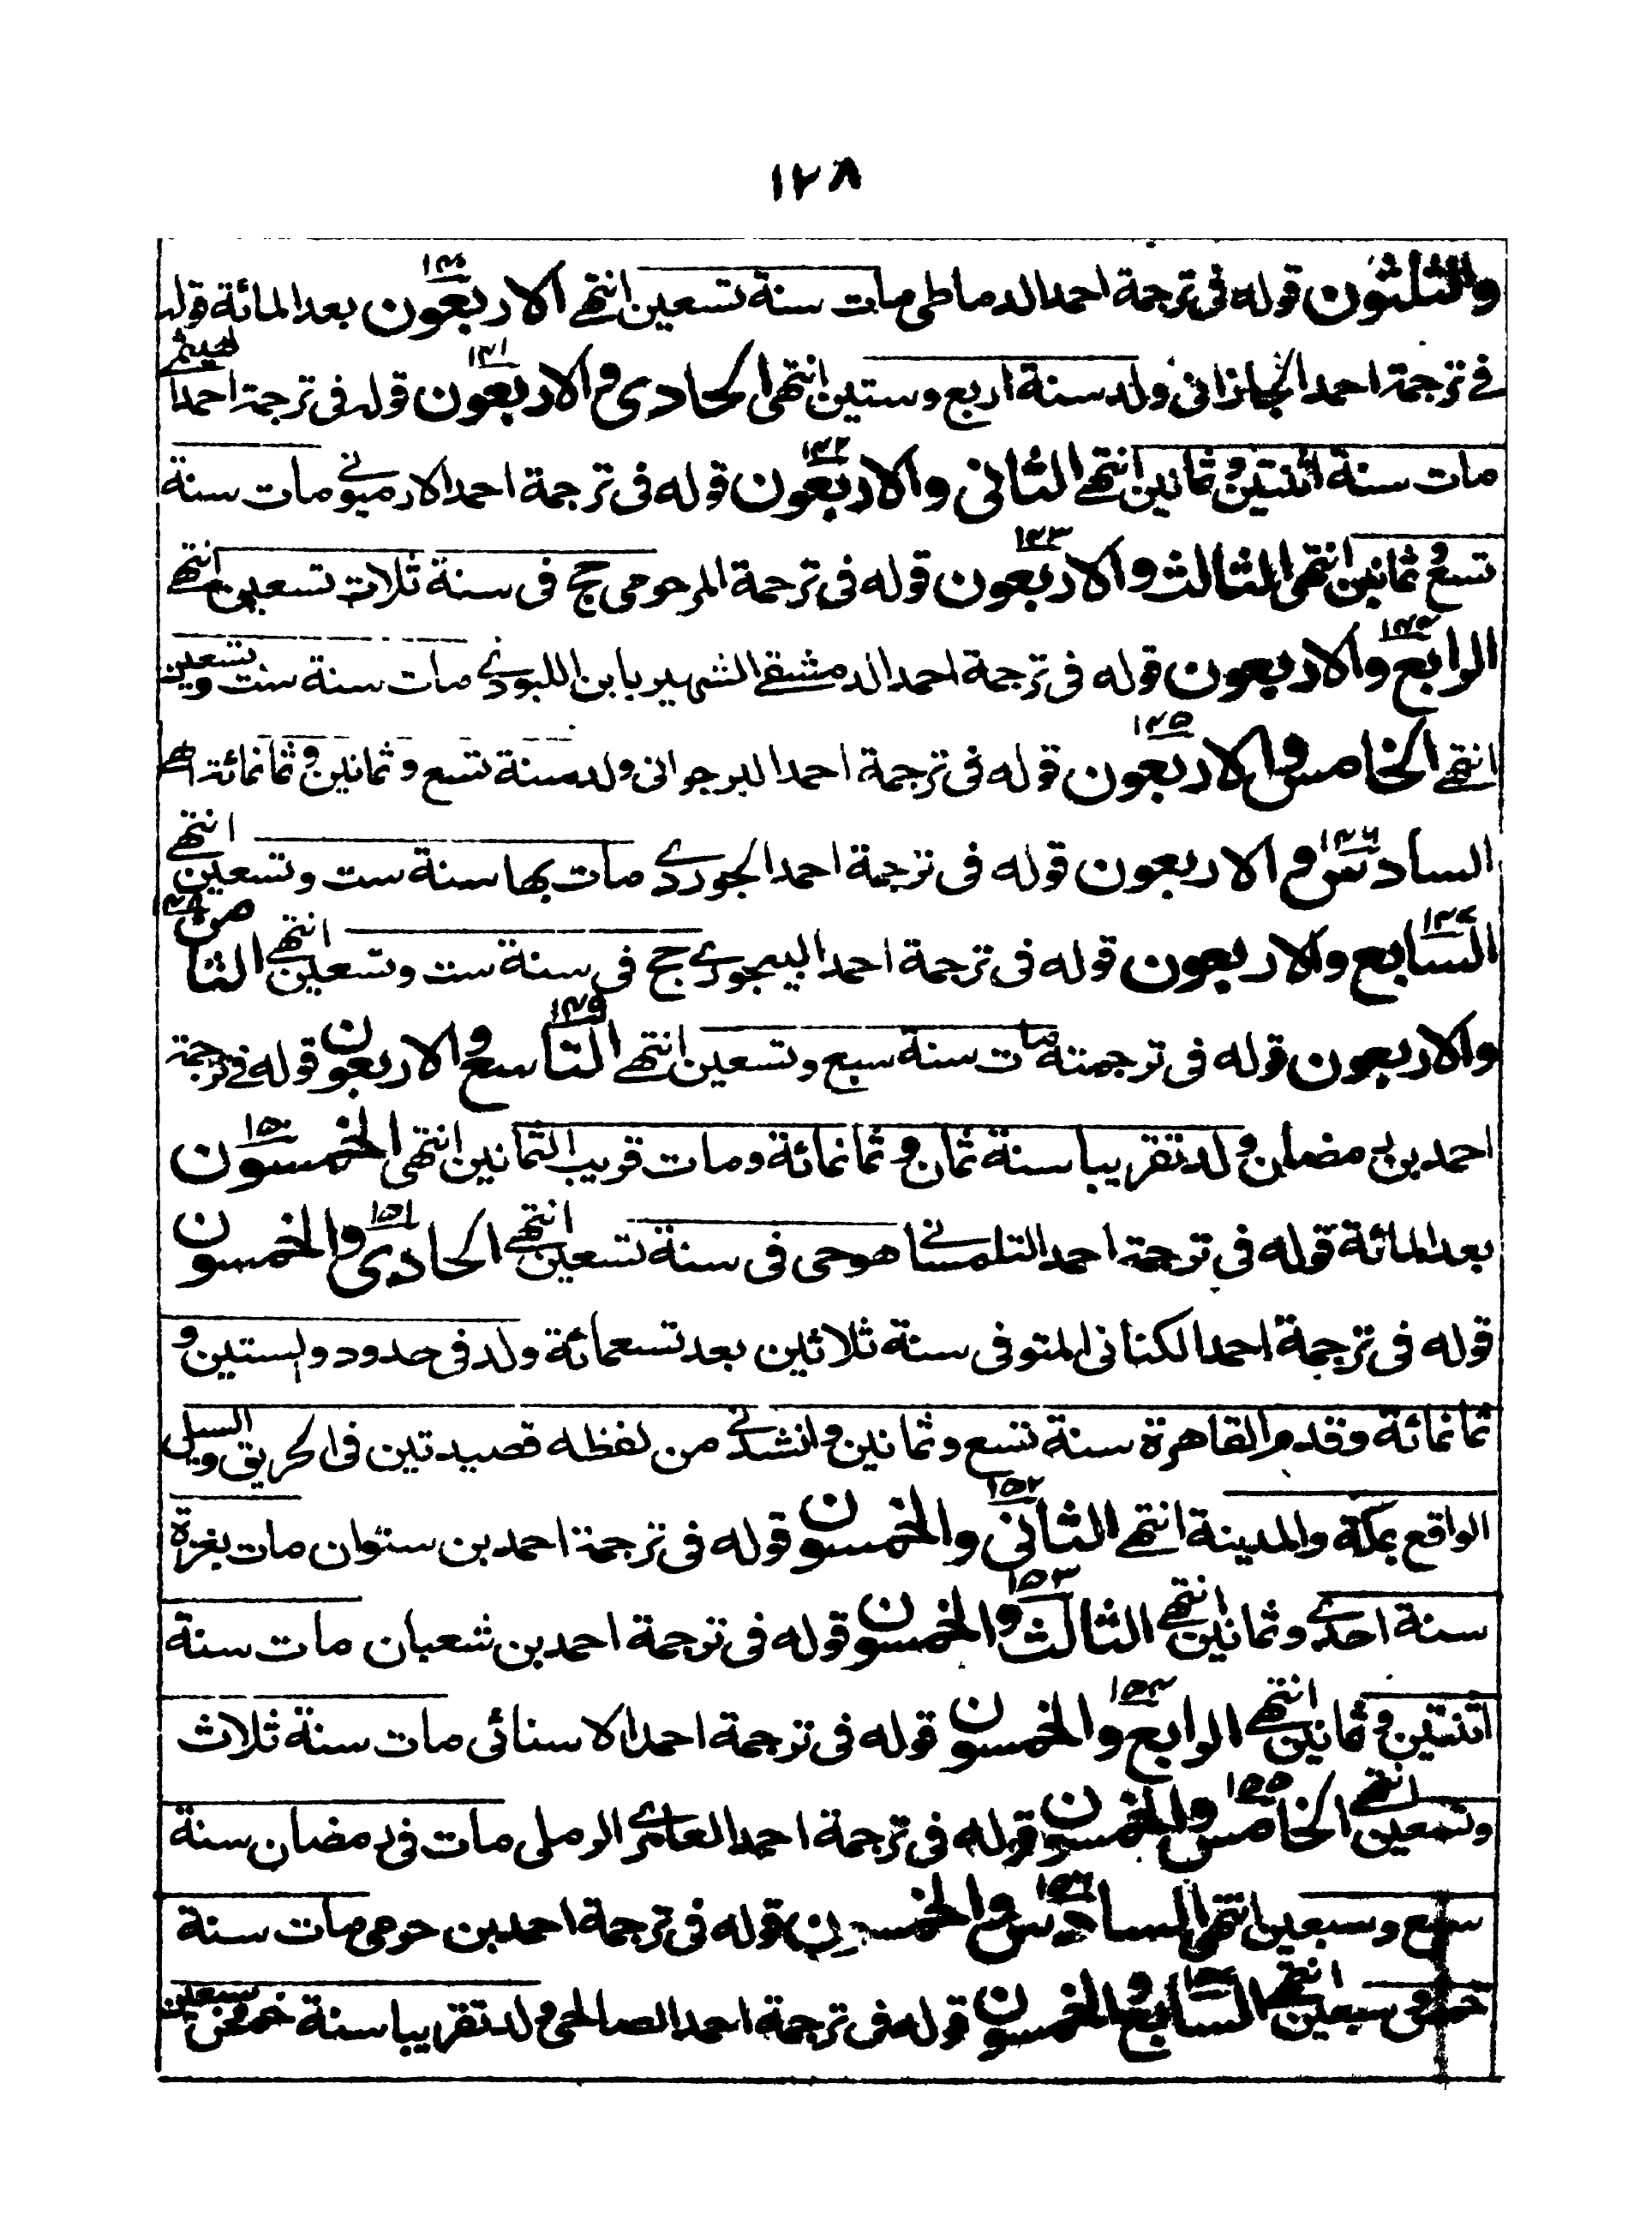 ١٢٨
والثلثون قوله فى ترجمة احمد الدماطى مات سنة تسعين انتهے الاربعون ١٤٠ بعد المائة قوله
فے ترجمة احمد الجازانى ولد سنة اربع وستين انتهى الحادى والاربعون ١٤١ قوله فى ترجمة احمد الهيثم
مات سنة اثنتين وثمانين انتهے الثانى والاربعون ١٤٢ قوله فى ترجمة احمد الارميونے مات سنة
تسع وثمانين انتهى الثالث والاربعون ١٤٣ قوله فى ترجمة المرحومى حج فى سنة ثلاث تسعين انتهے
الرابع والاربعون ١٤٤ قوله فى ترجمة احمد الدمشقے الشهير بابن اللبودے مات سنة ست وتسعين
انتهے الخامس والاربعون ١٤٥ قوله فى ترجمة احمد البرجوانى ولد سنة تسع وثمانين وثمانمائة اھ
السادس والاربعون ١٤٦ قوله فى ترجمة احمد الجورے مات بها سنة ست وتسعين انتهے
السابع والاربعون ١٤٧ قوله فى ترجمة احمد البيجورے حج فى سنة ست وتسعين انتهے الثامن ١٤٨
والاربعون قوله فى ترجمته مات سنة سبع وتسعين انتهے التاسع والاربعون ١٤٩ قوله فے ترجمة
احمد بن رمضان ولد تقريبا سنة ثمان وثمانمائة ومات قريب الثمانين انتهى الخمسون ١٥٠
بعد المائة قوله فى ترجمة احمد التلمسانے هو حى فى سنة تسعين انتهے الحادى والخمسون ١٥١
قوله فى ترجمة احمد الكنانى المتوفى سنة ثلاثين بعد تسعمائة ولد فى حدود الستين و
ثمانمائة وقدم القاهرة سنة تسع وثمانين وانشدنے من لفظه قصيدتين فى الحريق والسيل
الواقع بمكة والمدينة انتهے الثانى والخمسون ١٥٢ قوله فى ترجمة احمد بن ستوان مات بغزة
سنة احدے وثمانين انتهے الثالث والخمسون ١٥٣ قوله فى ترجمة احمد بن شعبان مات سنة
اثنتين وثمانين انتهے الرابع والخمسون ١٥٤ قوله فى ترجمة احمد الاسنائى مات سنة ثلاث
وتسعين انتهے الخامس والخمسون ١٥٥ قوله فى ترجمة احمد العامرے الرملى مات فى رمضان سنة
سبع وسبعين انتهى السادس والخمسون ١٥٦ قوله فى ترجمة احمد بن حرمى مات سنة
خمس وسبعين انتهے السابع والخمسون ١٥٧ قوله فى ترجمة احمد الصالحى ولد تقريبا سنة خمس وسبعين